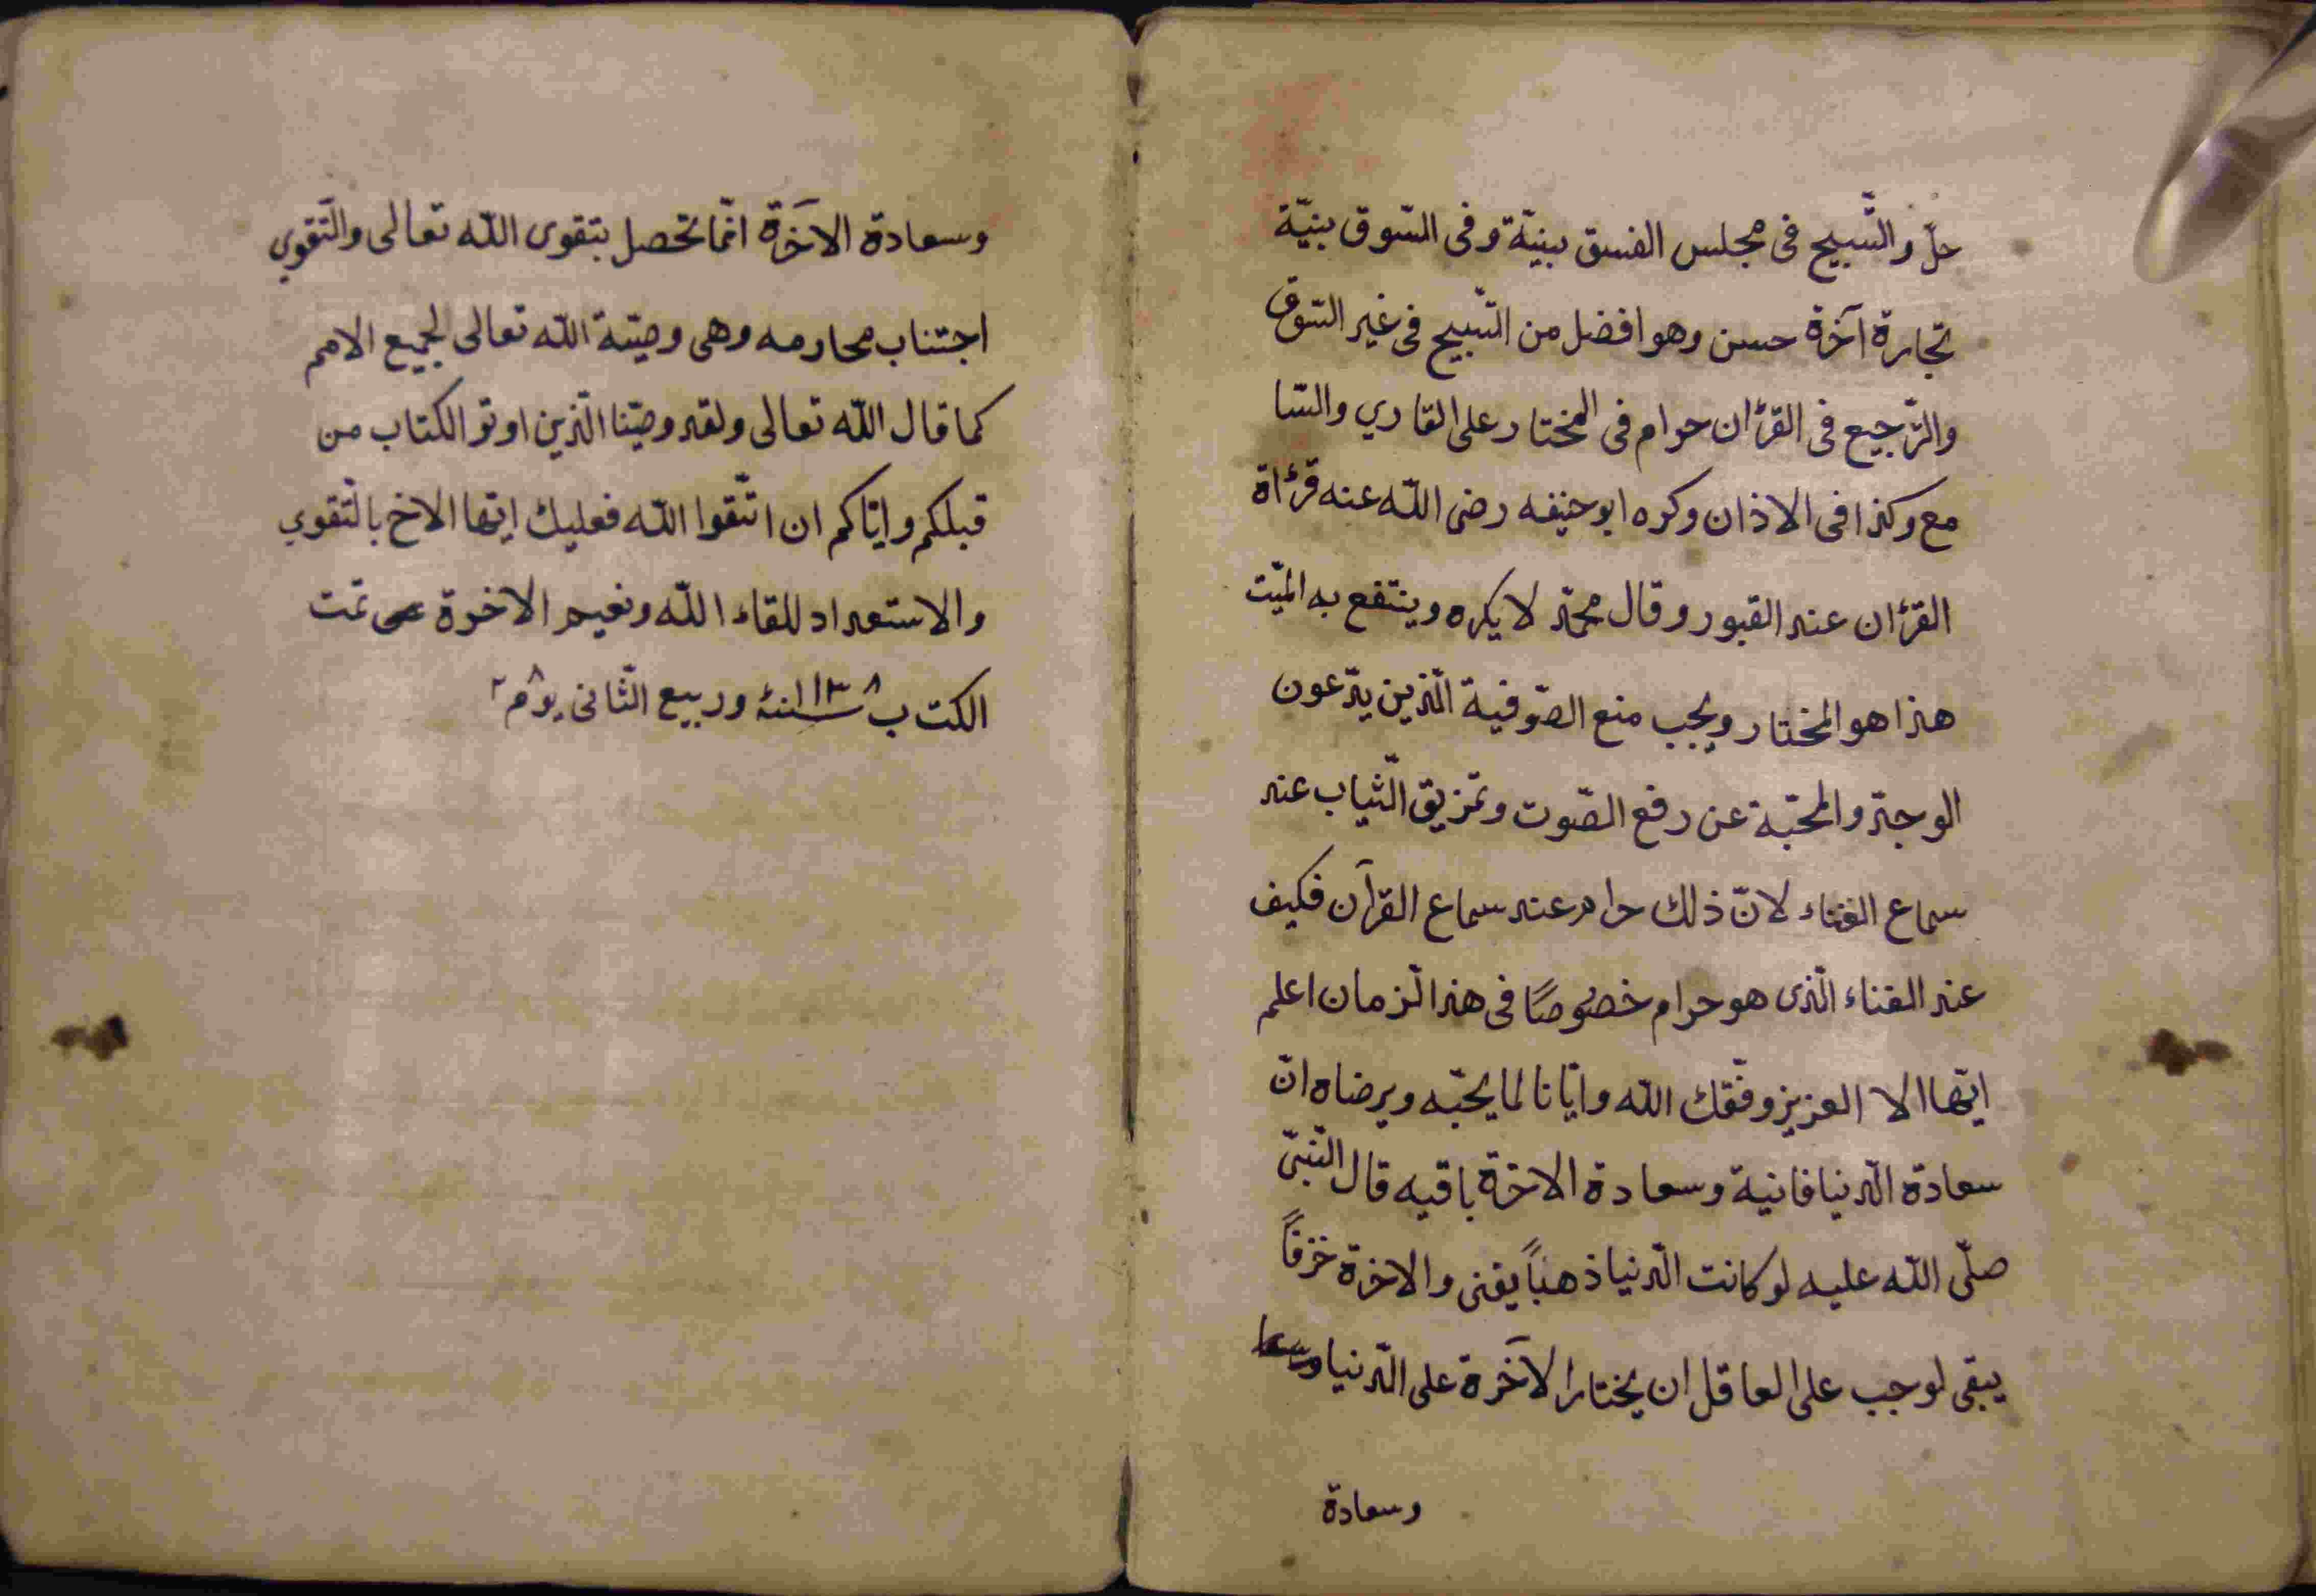 حلّ والتّسبيح فى مجلس الفسق بنيّة وفى السّوق بنيّة
تجارة آخرة حسن وهو افضل من التّسبيح فى غير السّوق
والتّرجيع فى القرٔان حرام فى المختار على القاري والسّا
مع وكذا فى الاذان وكره ابو حنيفه رضى اللّه عنه قرٔاة
القرٔان عند القبور وقال محمّد لا يكره وينتفع به الميّت
هذا هو المختار ويجب منع الصّوفية الّذين يدّعون
الوجد والمحبّة عن رفع الصّوت وتمزيق الثّياب عند
سماع الغناء لانّ ذلك حرام عند سماع القرآن فكيف
عند الغناء الّذى هو حرام خصوصًا فى هذا الزمان اعلم
ايّها الا العزيز وفّقك اللّه وايّانا لما يحبّه ويرضاه انّ
سعادة الدّنيا فانية وسعادة الاخرة باقيه قال النّبىّ
صلّى اللّه عليه لو كانت الدّنيا ذهبًا يفنى والاخرة خزفًا
يبقى لوجب على العاقل ان يختار الآخرة على الدّنيا
وسعادة
وسعادة الآخرة انّما تحصل بتقوى اللّه تعالى والتّقوي
اجتناب محارمه وهى وصيّة اللّه تعالى لجميع الامم
كما قال اللّه تعالى ولقد وصّينا الّذين اوتو الكتاب من
قبلكم وايّاكم ان اتّقوا اللّه فعليك ايّها الاخ بالتّقوي
والاستعداد للقاء اللّه ونعيم الاخرة تمت
الكتب سنة ١١٣٨ وربيع الثّانى يوم ٢